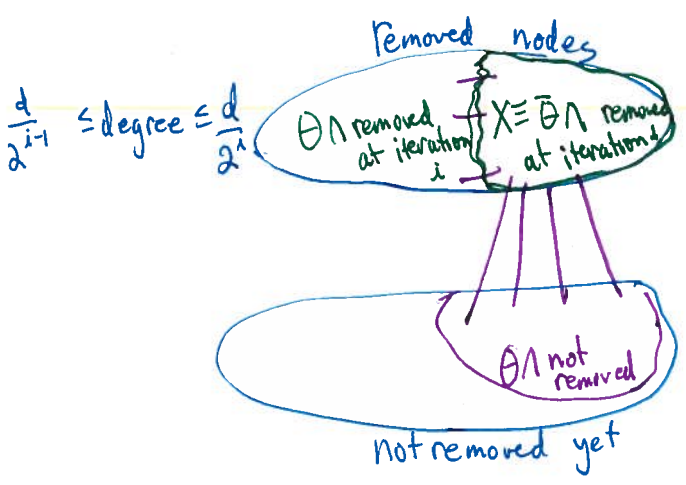 removed nodes
d/2^{i-1} ≤ degree ≤ d/2^i
Θ ∩ removed
at iteration
i
X ≡ Θ̄ ∩ removed
at iteration i
Θ ∩ not
removed
not removed yet